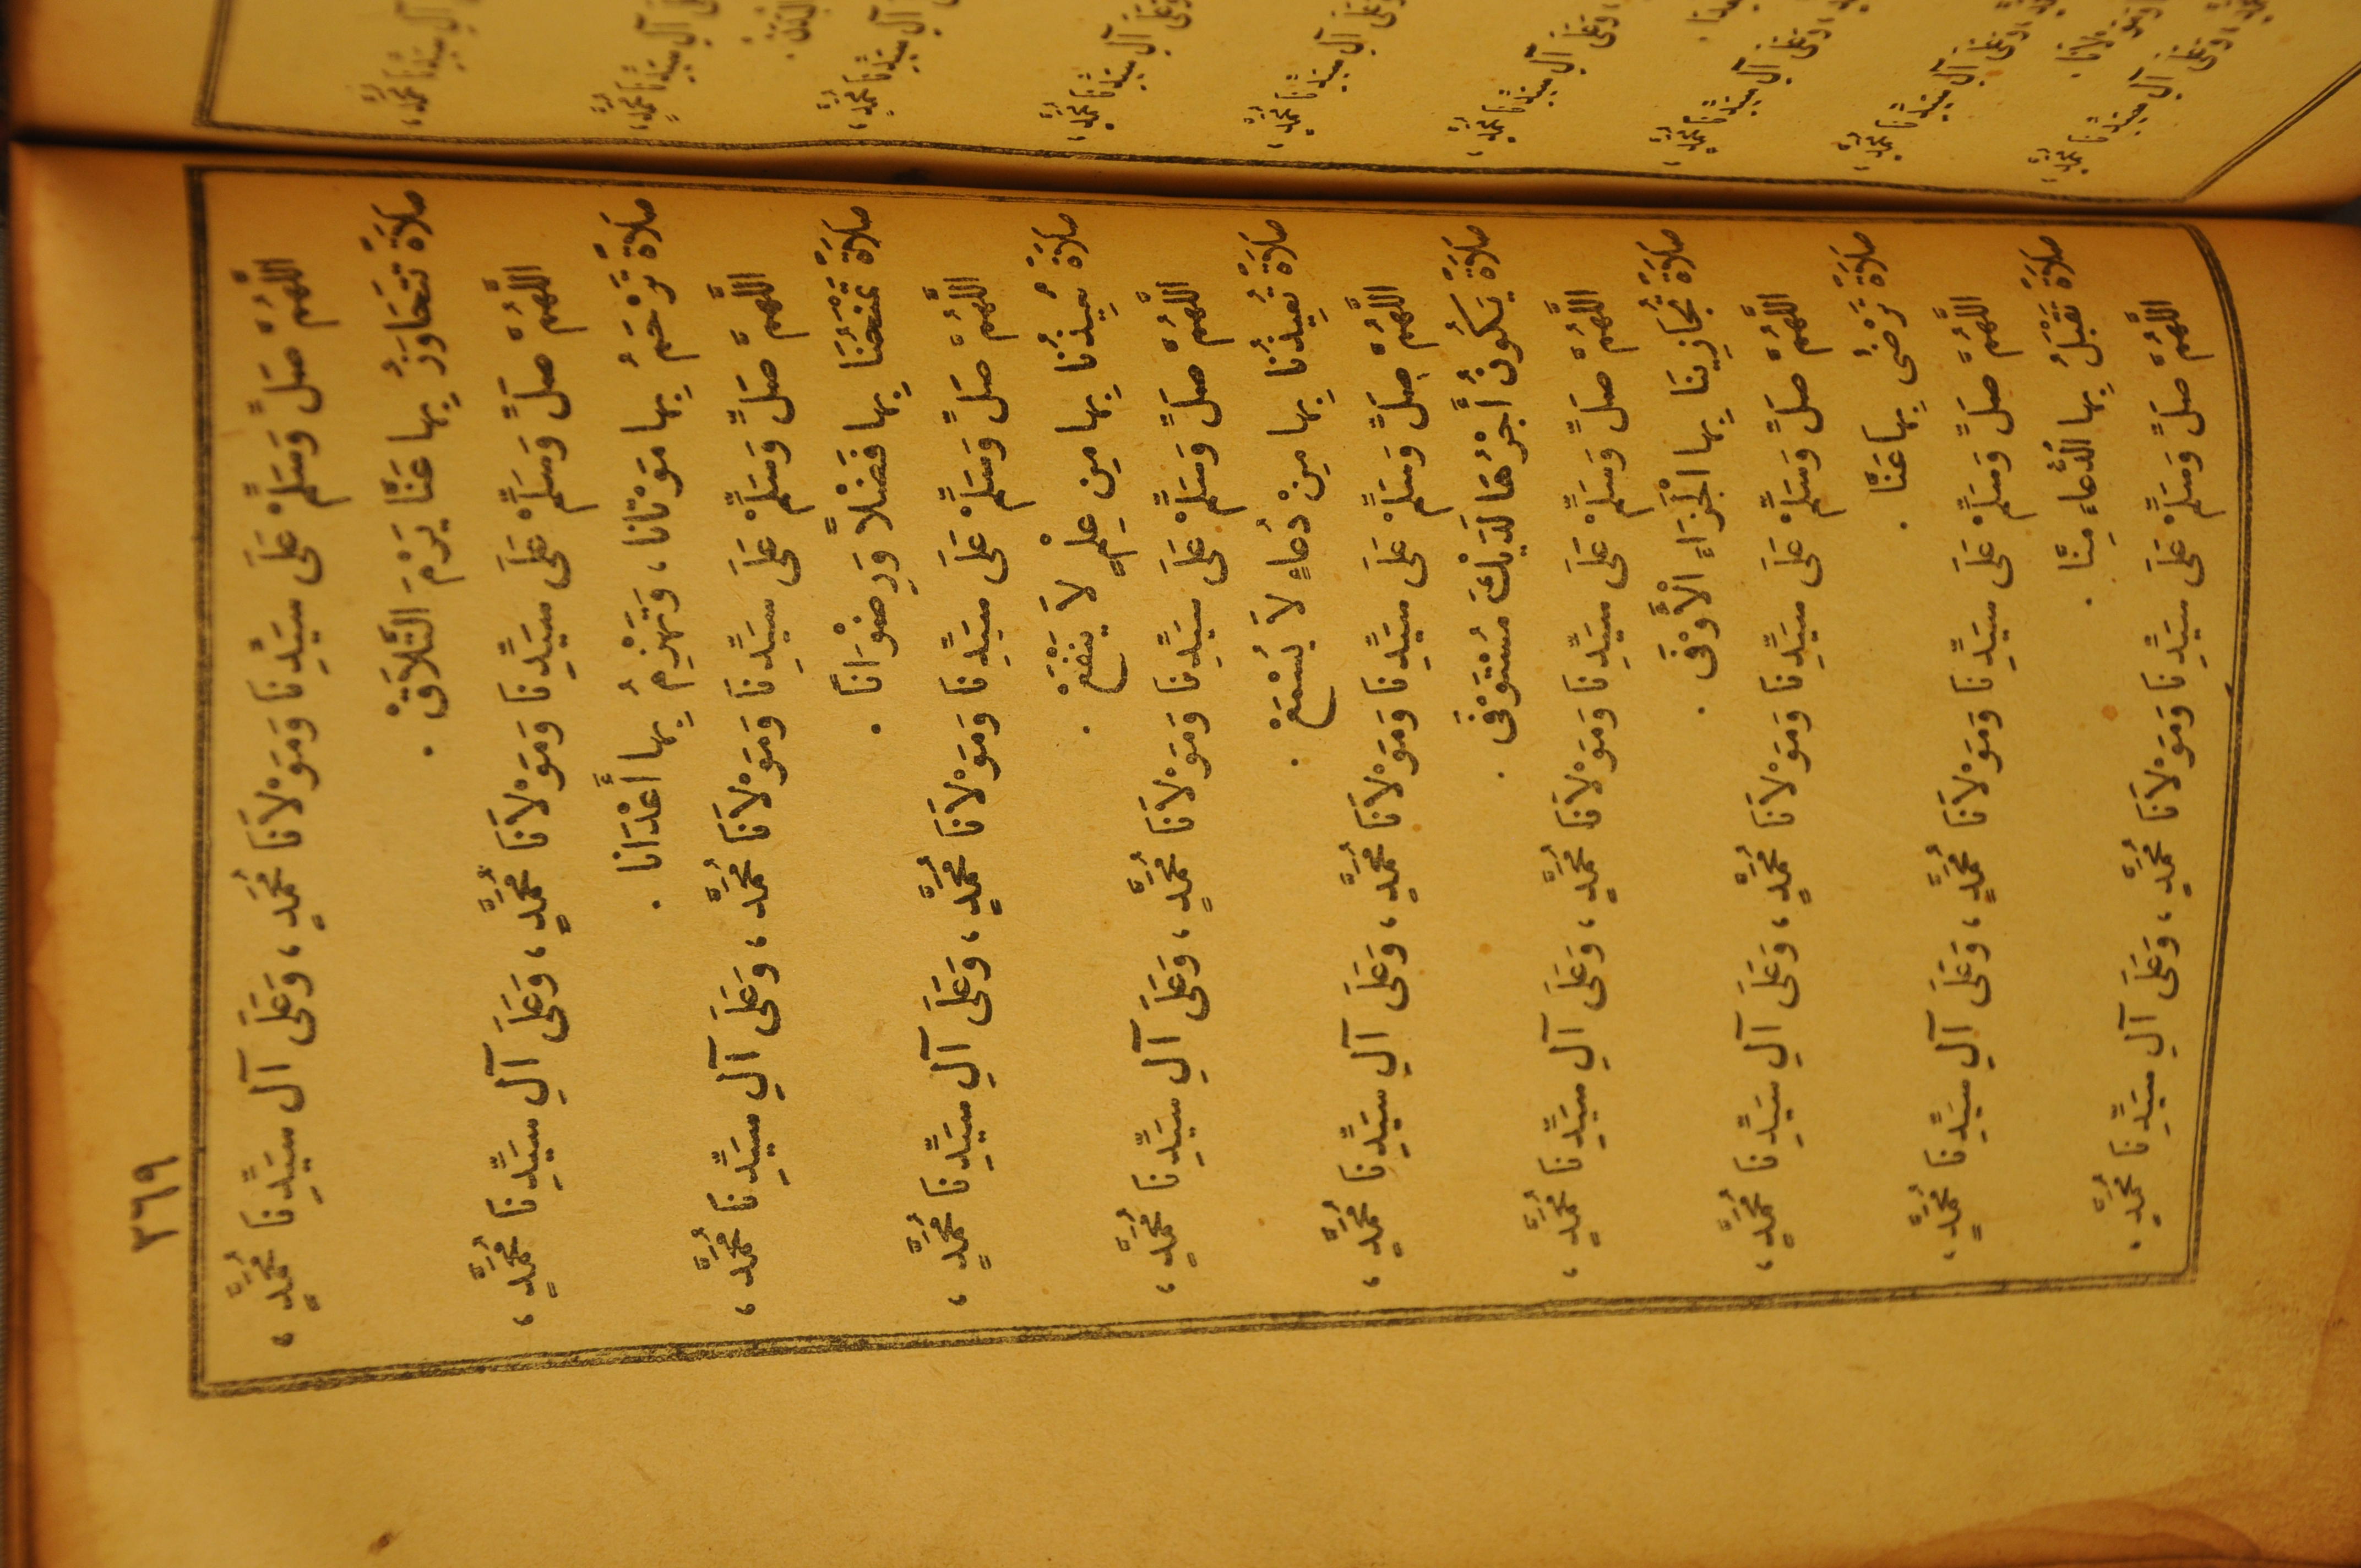 ٣٦٩
اللَّهُمَّ صَلِّ وَسَلِّمْ عَلَى سَيِّدِنَا وَمَوْلاَنَا مُحَمَّدٍ، وَعَلَى آلِ سَيِّدِنَا مُحَمَّدٍ،
صَلاَةً تَتَجَاوَزُ بِهَا عَنَّا يَوْمَ التَّلاَقْ.
اللَّهُمَّ صَلِّ وَسَلِّمْ عَلَى سَيِّدِنَا وَمَوْلاَنَا مُحَمَّدٍ، وَعَلَى آلِ سَيِّدِنَا مُحَمَّدٍ،
صَلاَةً تَرْحَمُ بِهَا مَوْتَانَا، وَتَهْزِمُ بِهَا أَعْدَانَا.
اللَّهُمَّ صَلِّ وَسَلِّمْ عَلَى سَيِّدِنَا وَمَوْلاَنَا مُحَمَّدٍ، وَعَلَى آلِ سَيِّدِنَا مُحَمَّدٍ،
صَلاَةً تَمْنَحُنَا بِهَا فَضْلاً وَرِضْوَانًا.
اللَّهُمَّ صَلِّ وَسَلِّمْ عَلَى سَيِّدِنَا وَمَوْلاَنَا مُحَمَّدٍ، وَعَلَى آلِ سَيِّدِنَا مُحَمَّدٍ،
صَلاَةً تُعِيذُنَا بِهَا مِن عِلْمٍ لاَ يَنْفَعْ.
اللَّهُمَّ صَلِّ وَسَلِّمْ عَلَى سَيِّدِنَا وَمَوْلاَنَا مُحَمَّدٍ، وَعَلَى آلِ سَيِّدِنَا مُحَمَّدٍ،
صَلاَةً تُعِيذُنَا بِهَا مِنْ دُعَاءٍ لاَ يُسْمَعْ.
اللَّهُمَّ صَلِّ وَسَلِّمْ عَلَى سَيِّدِنَا وَمَوْلاَنَا مُحَمَّدٍ، وَعَلَى آلِ سَيِّدِنَا مُحَمَّدٍ،
صَلاَةً يَكُونُ أَجْرُهَا لَدَيْكَ مُسْتَوْفَى.
اللَّهُمَّ صَلِّ وَسَلِّمْ عَلَى سَيِّدِنَا وَمَوْلاَنَا مُحَمَّدٍ، وَعَلَى آلِ سَيِّدِنَا مُحَمَّدٍ،
صَلاَةً تُجَازِينَا بِهَا الْجَزَاءِ الْأَوْفَى.
اللَّهُمَّ صَلِّ وَسَلِّمْ عَلَى سَيِّدِنَا وَمَوْلاَنَا مُحَمَّدٍ، وَعَلَى آلِ سَيِّدِنَا مُحَمَّدٍ،
صَلاَةً تَرْضَى بِهَا عَنَّا.
اللَّهُمَّ صَلِّ وَسَلِّمْ عَلَى سَيِّدِنَا وَمَوْلاَنَا مُحَمَّدٍ، وَعَلَى آلِ سَيِّدِنَا مُحَمَّدٍ،
صَلاَةً تَقْبَلُ بِهَا الدُّعَاءِ مِنَّا.
اللَّهُمَّ صَلِّ وَسَلِّمْ عَلَى سَيِّدِنَا وَمَوْلاَنَا مُحَمَّدٍ، وَعَلَى آلِ سَيِّدِنَا مُحَمَّدٍ.